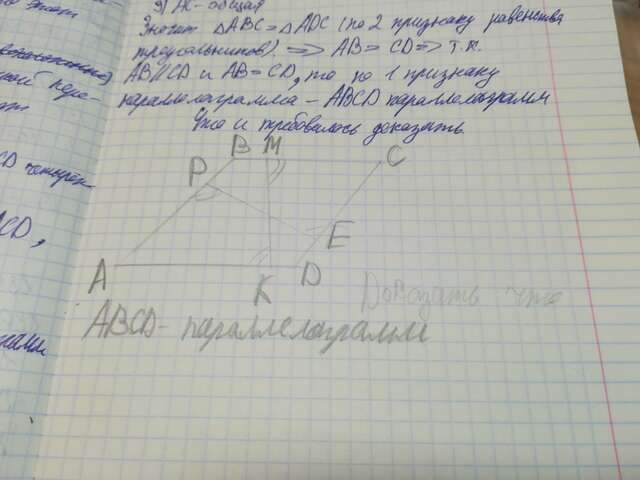 3) АС - общая
Значит △ABC = △ADC (по 2 признаку равенства
треугольников) => AB = CD => т.к.
AB||CD и AB = CD, то по 1 признаку
параллелограмма - ABCD параллелограмм
Что и требовалось доказать.
B M C
P
E
A K D
Доказать что
ABCD - параллелограмм